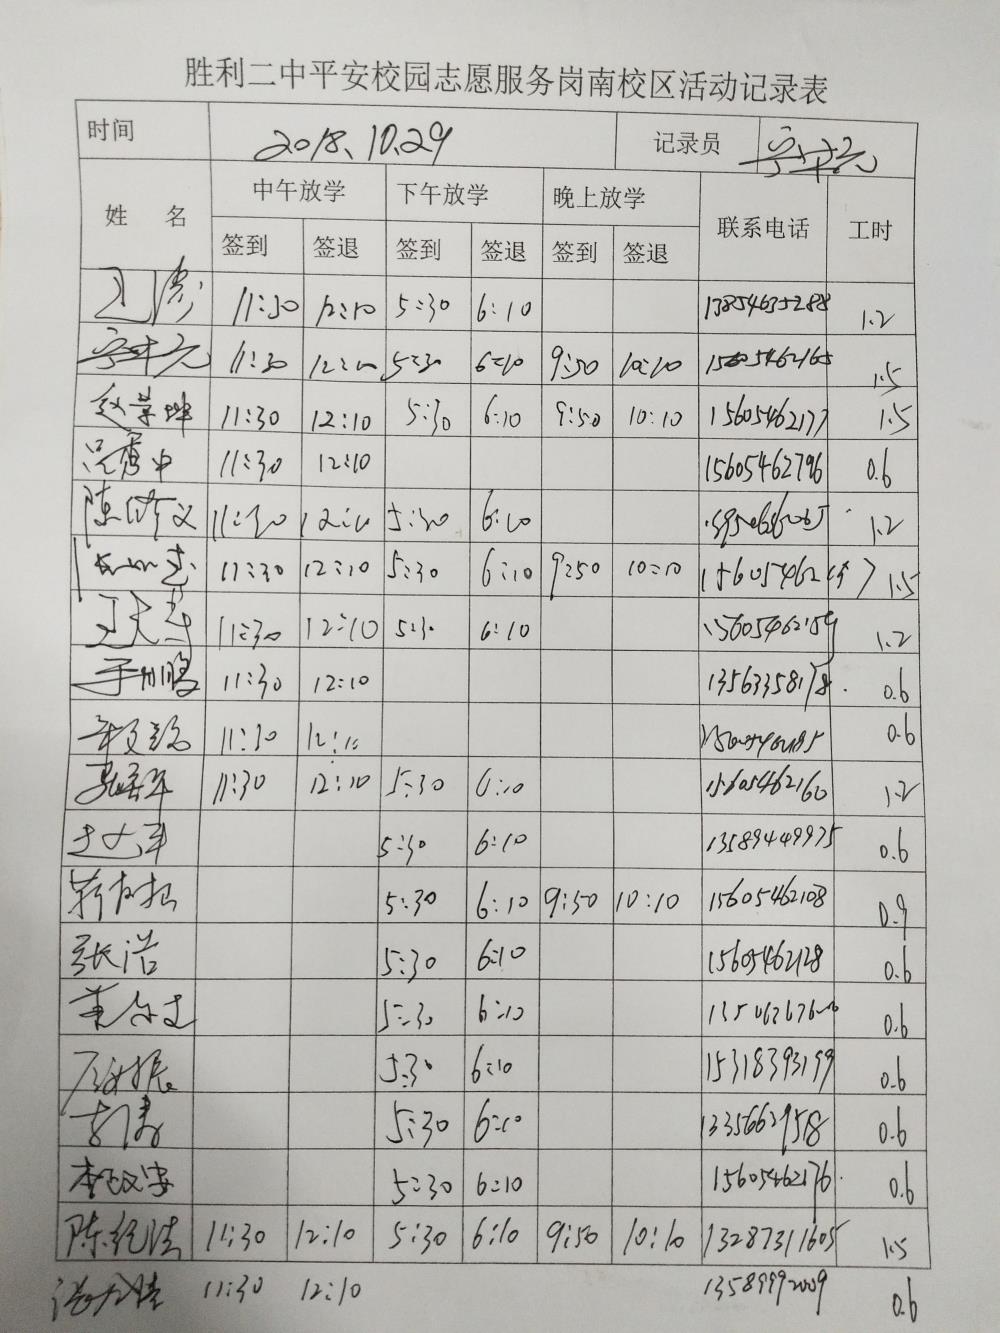 胜利二中平安校园志愿服务岗南校区活动记录表
时间 2018.10.29 记录员
姓 名 中午放学 下午放学 晚上放学 联系电话 工时
签到 签退 签到 签退 签到 签退
11:30 12:10 5:30 6:10 13854635288 1.2
11:30 12:10 5:30 6:10 9:50 10:10 15605462165 1.5
赵荣坤 11:30 12:10 5:30 6:10 9:50 10:10 15605462177 1.5
11:30 12:10 15605462796 0.6
陈修文 11:30 12:10 5:30 6:10 1.2
11:30 12:10 5:30 6:10 9:50 10:10 1.5
11:30 12:10 5:30 6:10 15605462159 1.2
11:30 12:10 13563358178 0.6
11:30 12:10 0.6
11:30 12:10 5:30 6:10 15605462160 1.2
5:30 6:10 13589449975 0.6
5:30 6:10 9:50 10:10 15605462108 0.9
张浩 5:30 6:10 15605462128 0.6
5:30 6:10 0.6
5:30 6:10 15318393199 0.6
5:30 6:10 13356629518 0.6
李政安 5:30 6:10 15605462176 0.6
陈纪法 11:30 12:10 5:30 6:10 9:50 10:10 13287311605 1.5
11:30 12:10 13589992009 0.6